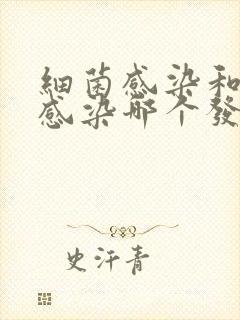 細菌感染和
感染哪个發
史汗青